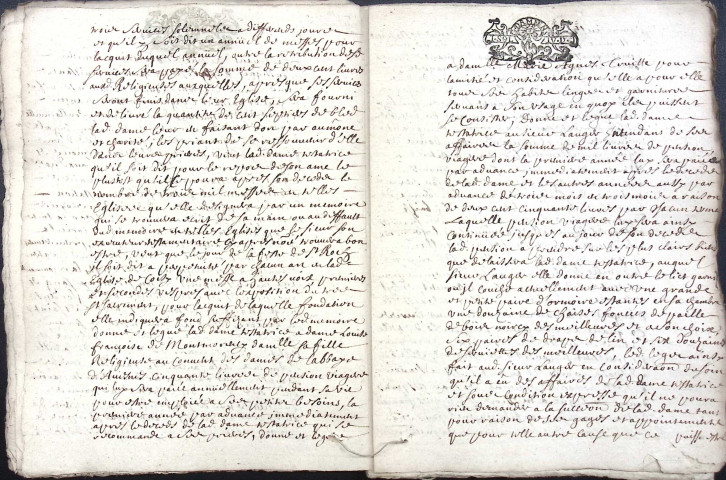 trois services solemnelles a differends jours
et qu'il y soit dit un annuel de messes pour
lacquit duquel annuel, outre la retribution desd
services sera payé la somme de deux cent livres
aux Religieuses auxquelles, apres que les services
seront finis dans leur Eglise, sera fourni
et delivré la quantité de six septiers de bled
lad dame leur en faisant don par aumone
et charité, les priant de se ressouvenir d'elle
dans leurs prieres, veut lad dame testatrice
qu'il soit dit pour le repos de son ame le
plustost qu'il se pourra apres son deceds le
nombre de trois mil messes en telles
Eglises qu'elle designera par un memoire
qui se trouvera ecrit de sa main ou au deffault
dud memoire en telles Eglises que le sieur son
executeur testamentaire cy apres nommé trouvera bon
estre, veut que le jour de la feste de St Roch
il soit dit a perpetuité par chacun an en lad
Eglise de une messe a hautes voix premieres
et secondes vespres avec l'exposition du tres
St Sacrement, pour lacquit de laquelle fondation
elle indiquera fond suffisant par led memoire
donne et legue lad dame testatrice a dame Louise
françoise de Montmorency damlle sa fille
Religieuse au couvent des dames de labbaye
cinquante livres de pension viagere
qui luy sera paié annuellement pendant sa vie
pour estre employée a ses petits besoins, la
premiere année par advance immediatement
apres le deceds de lad dame testatrice qui se
recommande a ses prieres, donne et legue
a damlle Marie Agnes pour
lamitié et consideration qu'elle a pour elle
tous ses habits linges et garnitures
servant a son usage en quoy elles puissent
se consister; Donne et legue lad dame
testatrice au sieur Langer intendant de ses
affaires la somme de mil livres de pension
viagere dont la premiere année luy sera paiée
par advance immediatement apres le deceds
de lad dame et les autres années aussy par
advance de trois mois en trois mois a raison
de deux cent cinquante livres par chacun terme
Laquelle pension viagere luy sera ainsy
continuée jusques au jour de son deceds
lad pension a prendre sur les plus clairs biens
que delaissera lad dame testatrice, auquel
sieur Langer elle donne en outre le lit garni
ou il couche actuellement avec une grande
et petite paire d'armoire estantes en sa chambre
une douzaine de chaises foncées de paille
de bois noircy des meilleures et a son choix,
six paires de draps de lin et six douzaines
de serviettes des meilleures, led legs ainsy
fait aud sieur Langer en consideration du soin
qu'il a eu des affaires de lad dame testatrice
et sous condition expresse qu'il ne pourra
rien demander a la succession de lad dame tant
pour raison de ses gages et appointements
que pour telle autre cause que ce puisse estre